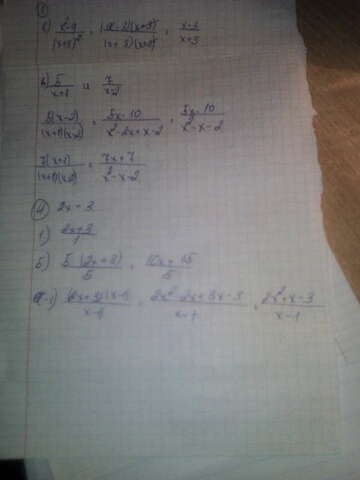 ①
б) x²-9/(x+3)² = (x-3)(x+3)/(x+3)(x+3) = x-3/x+3
в) 5/x+1 и 7/x-2
5(x-2)/(x+1)(x-2) = 5x-10/x²-2x+x-2 = 5x-10/x²-x-2
7(x+1)/(x+1)(x-2) = 7x+7/x²-x-2
④ 2x-3
1) 2x+3/1
5) 5(2x+3)/5 = 10x+15/5
x-1) (2x+3)(x-1)/x-1 = 2x²-2x+3x-3/x-1 = 2x²+x-3/x-1